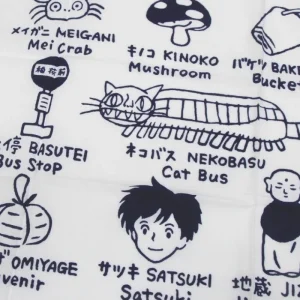 メイガニ MEIGANI
Mei Crab
キノコ KINOKO
Mushroom
バケツ BAKE
Bucket
稲荷前
停 BASUTEI
Bus Stop
ネコバス NEKOBASU
Cat Bus
OMIYAGE
venir
サツキ SATSUKI
Satsuki
地蔵 JI